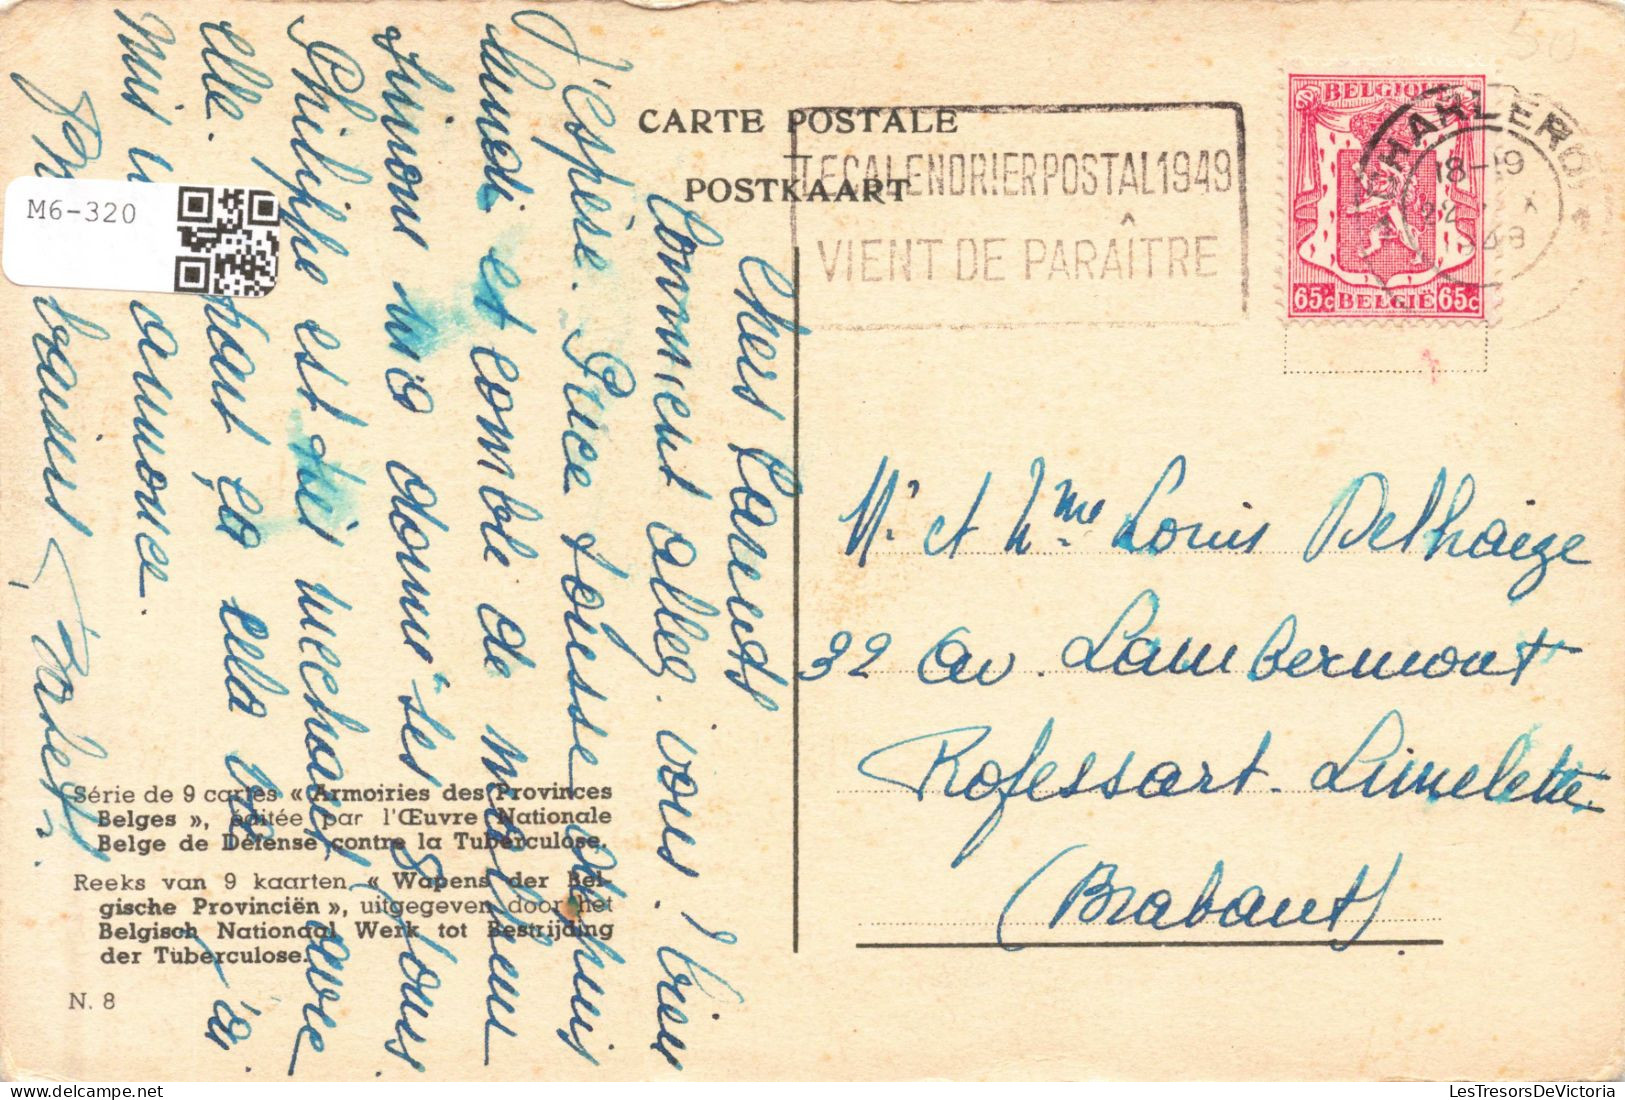 50
CARTE POSTALE
POSTKAART
LE CALENDRIER POSTAL 1949
VIENT DE PARAÎTRE
BELGIQUE
65c BELGIË 65c
CHARLEROI
18-19
M6-320
Chers Parents
Comment allez-vous? bien
j'espère. Puce tousse depuis
lundi et comble de malheur
Simone m'a donné ses 8 jours
Philippe est très méchant avec
elle. Pourtant ça cela
mis
annonce.
baisers
M. et Mme Louis Delhaize
32 Av. Lambermont
Rofessart-Limelette
(Brabant)
Série de 9 cartes « Armoiries des Provinces
Belges », éditée par l'Œuvre Nationale
Belge de Défense contre la Tuberculose.
Reeks van 9 kaarten « Wapens der Bel-
gische Provinciën », uitgegeven door het
Belgisch Nationaal Werk tot Bestrijding
der Tuberculose.
N. 8
LesTresorsDeVictoria